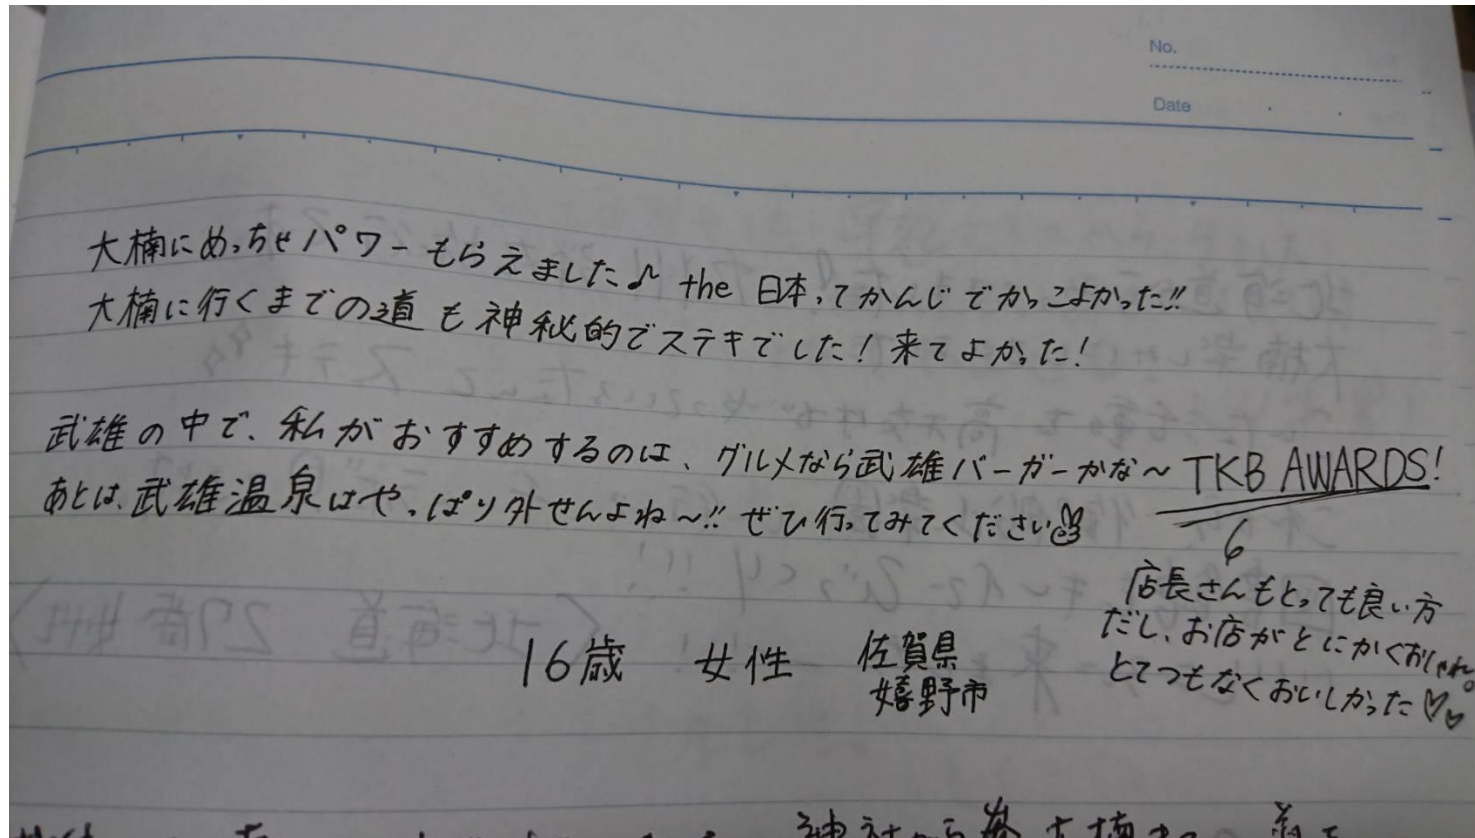 No.
Date
大楠にめっちゃパワーもらえました♪ the 日本ってかんじでかっこよかった!!
大楠に行くまでの道も神秘的でステキでした!来てよかった!
武雄の中で、私がおすすめするのは、グルメなら武雄バーガーかな〜TKB AWARDS!
あとは、武雄温泉はやっぱり外せんよね〜!!ぜひ行ってみてください
店長さんもとっても良い方
だし、お店がとにかくおしゃれ。
とてつもなくおいしかった♡♡
16歳 女性 佐賀県
嬉野市